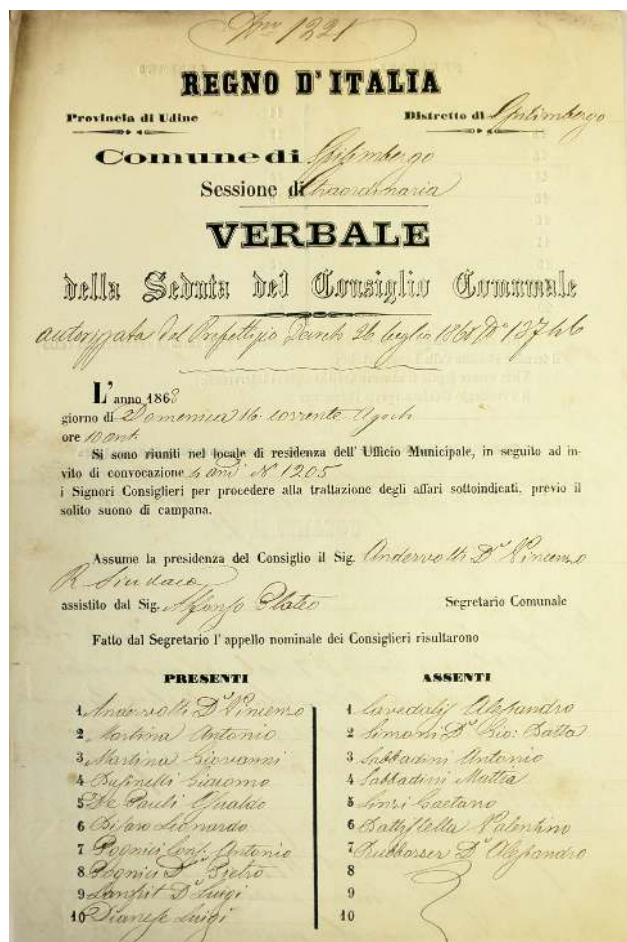 N° 1221
REGNO D'ITALIA
Provincia di Udine Distretto di Spilimbergo
Comune di Spilimbergo
Sessione di Straordinaria
VERBALE
della Seduta del Consiglio Comunale
autorizzata dal Prefettizio 26 luglio 1868 N° 13746
L'anno 1868
giorno di Domenica 16. corrente Agosto
ore 10 ant.
Si sono riuniti nel locale di residenza dell' Ufficio Municipale, in seguito ad in-
vito di convocazione 4 and° N° 1205
i Signori Consiglieri per procedere alla trattazione degli affari sottoindicati, previo il
solito suono di campana.
Assume la presidenza del Consiglio il Sig. Andervolti Dr Vincenzo
R. Sindaco
assistito dal Sig. Alfonso Plateo Segretario Comunale
Fatto dal Segretario l'appello nominale dei Consiglieri risultarono
PRESENTI
1 Andervolti Dr Vincenzo
2 Martina Antonio
3 Martina Giovanni
4 Businelli Giacomo
5 De Pauli Gualdo
6 Disaro Leonardo
7 Pognici Antonio
8 Pognici Dr Pietro
9 Lanfrit Dr Luigi
10 Dianese Luigi
ASSENTI
1 Cavedalis Alessandro
2 Simoni Dr Gio: Batta
3 Sabbadini Antonio
4 Sabbadini Mattia
5 Linzi Gaetano
6 Battistella Valentino
7 Dr Alessandro
8
9
10